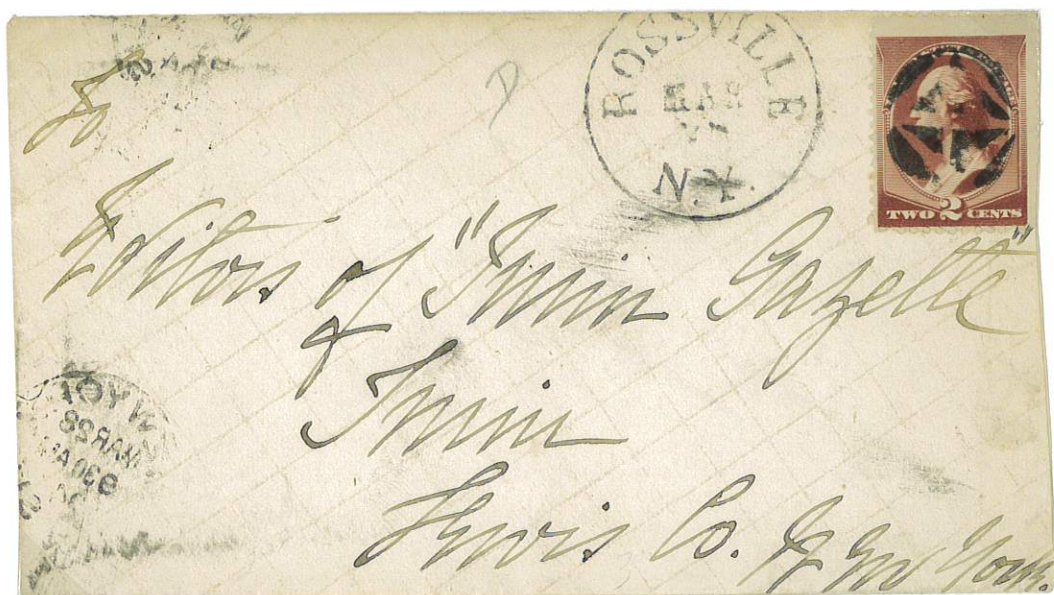 To
ROSSVILLE
MAR
N.Y.
TWO 2 CENTS
Editors of "Turin Gazette"
Turin
Lewis Co. New York.
MAR 22